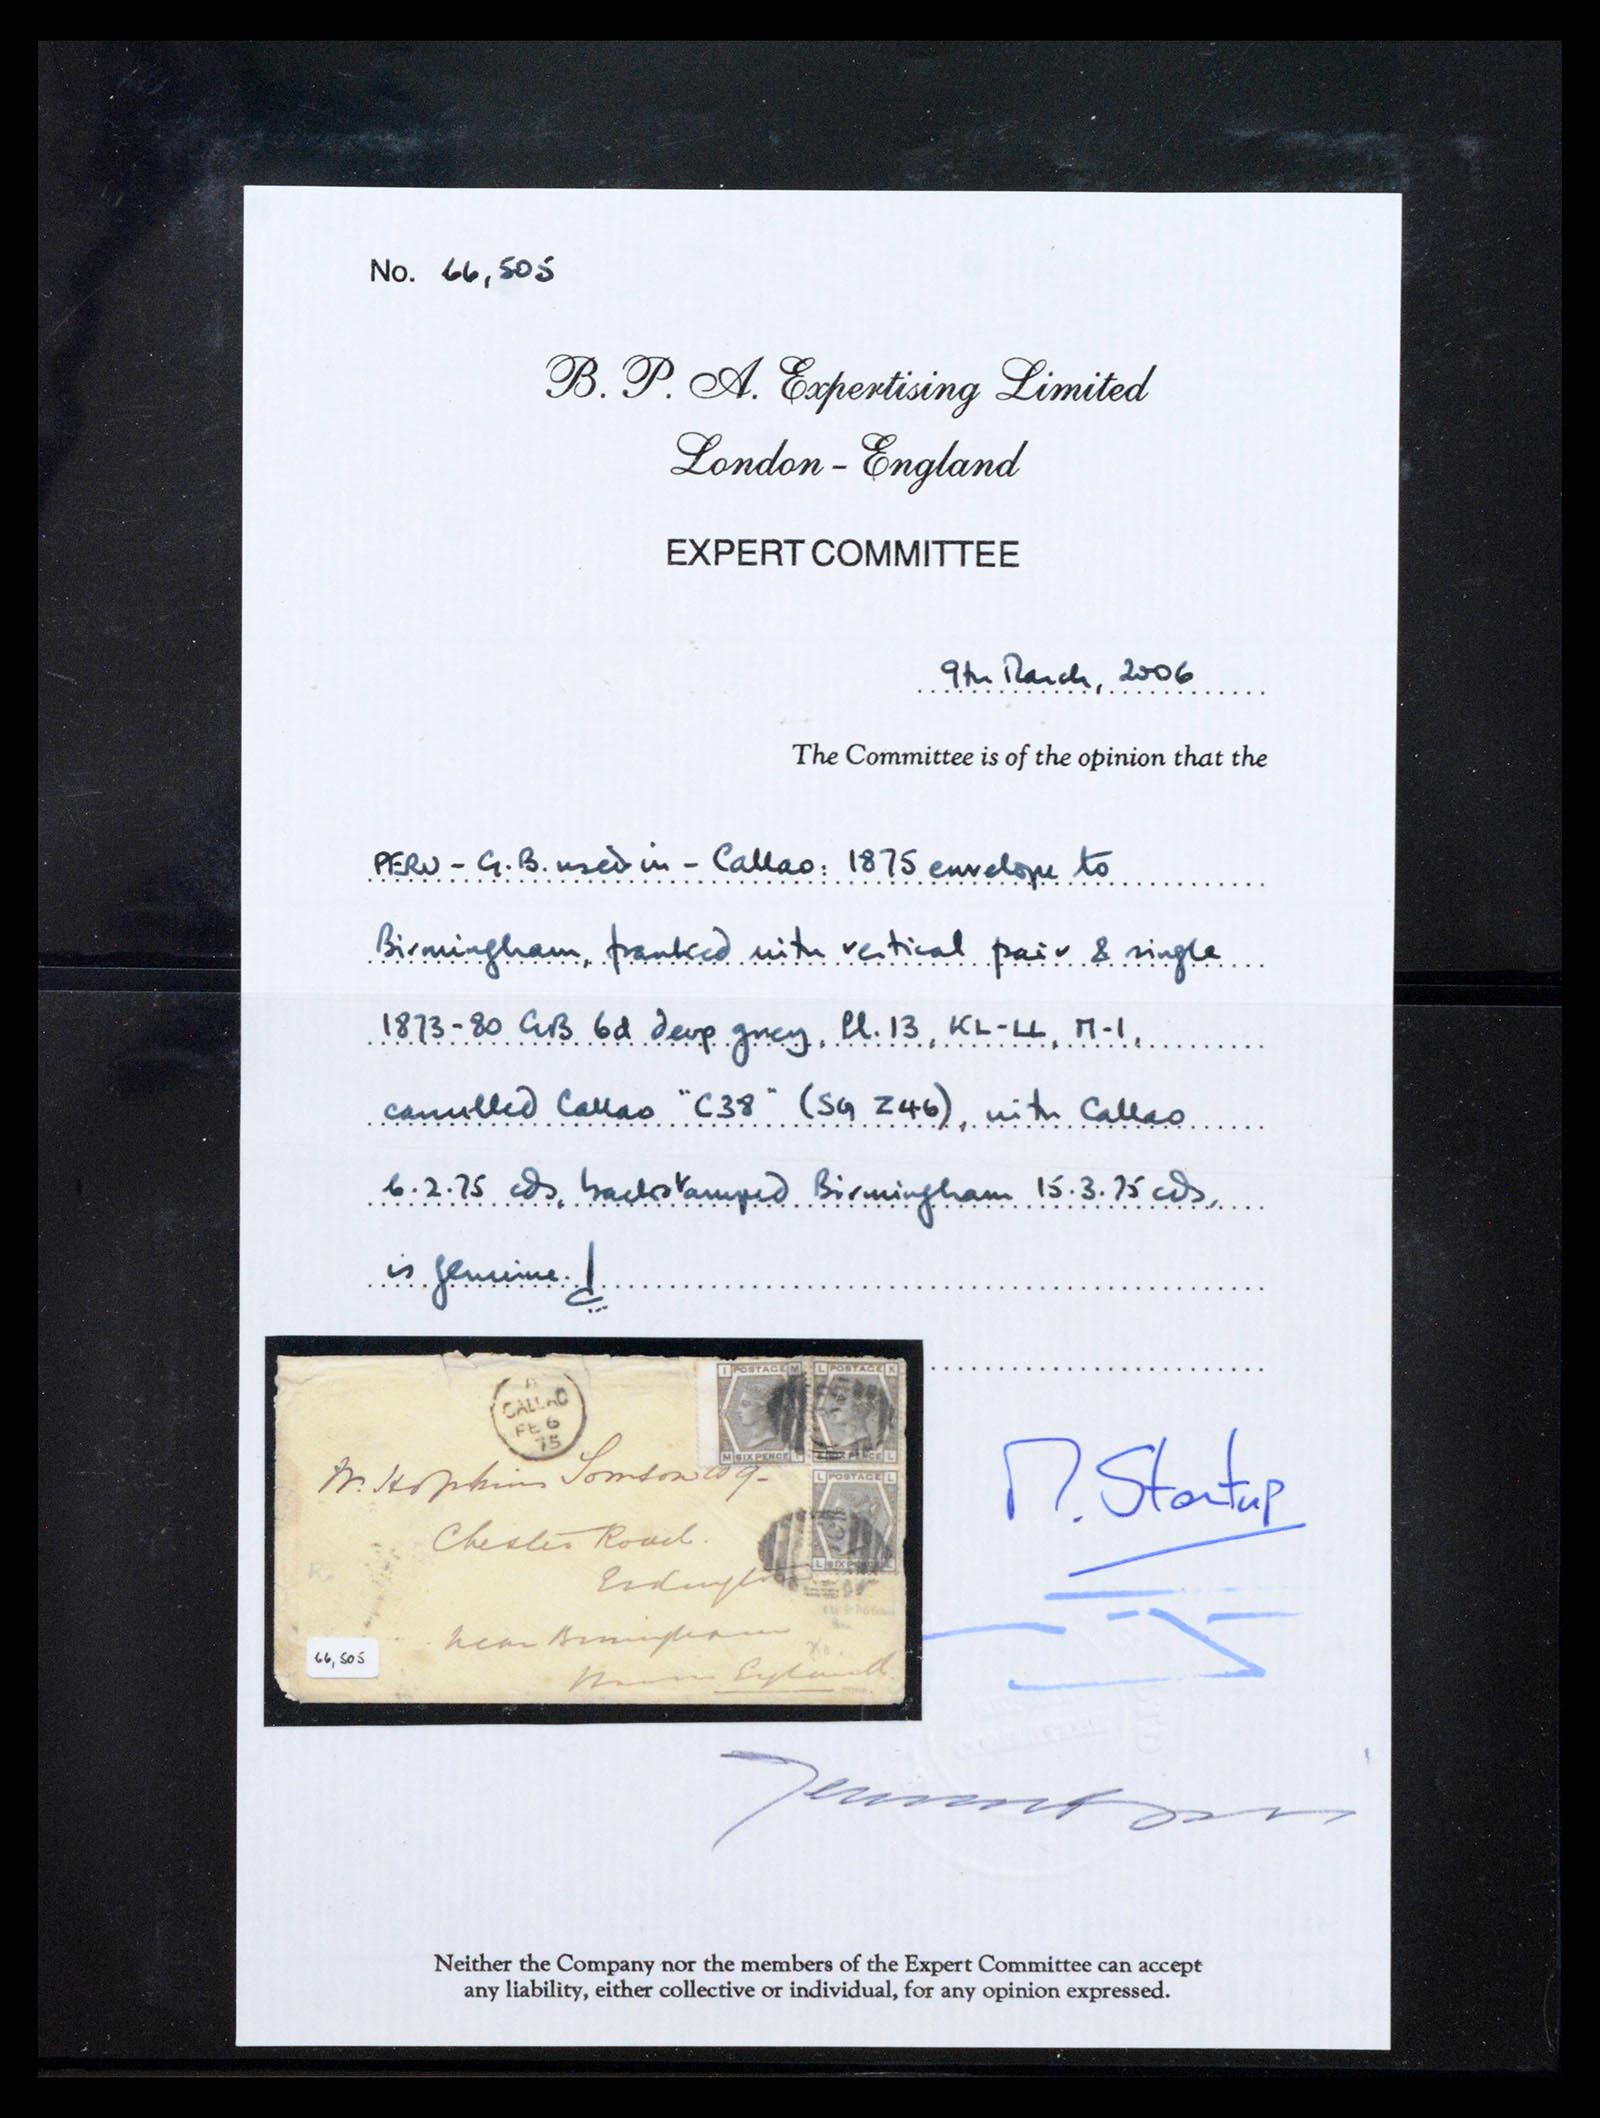 No. 66,505
B. P. A. Expertising Limited
London - England
EXPERT COMMITTEE
9th March, 2006
The Committee is of the opinion that the
PERU - G.B. used in - Callao: 1875 envelope to
Birmingham, franked with vertical pair & single
1873-80 GB 6d deep grey, Pl. 13, KL-LL, M-I,
cancelled Callao "C38" (SG Z46), with Callao
6.2.75 cds, backstamped Birmingham 15.3.75 cds,
is genuine.
I POSTAGE M L POSTAGE K
CALLAO
FE 6
75
M SIX PENCE I SIX PENCE L
Hopkins
L POSTAGE L
Chester Road.
L SIX PENCE
near Birmingham
England
66,505
M. Startup
Neither the Company nor the members of the Expert Committee can accept
any liability, either collective or individual, for any opinion expressed.